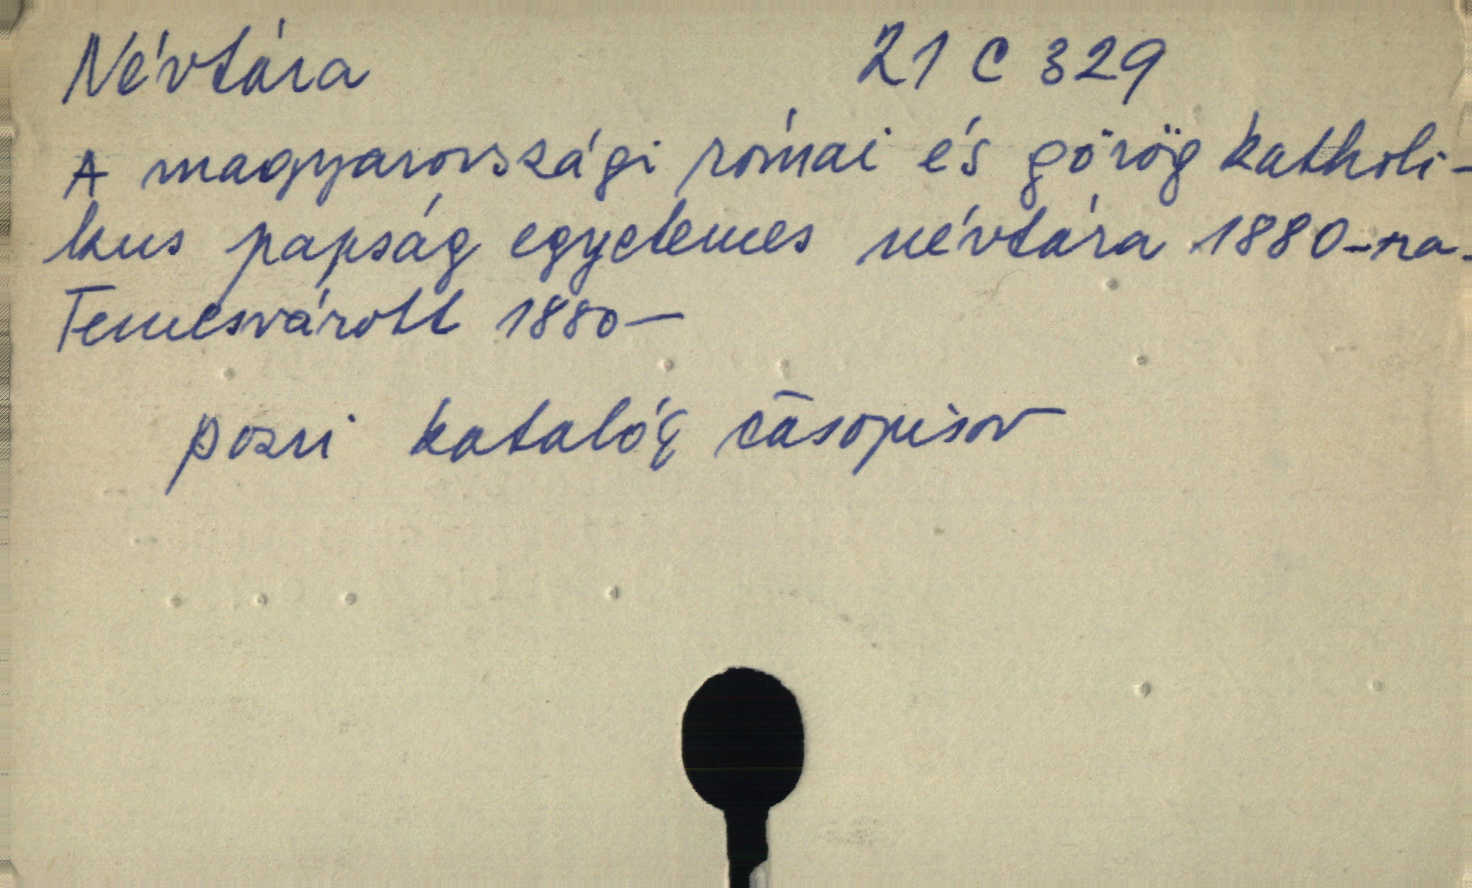 Névtára 21 C 329
A magyarországi római és görög katholi-
kus papság egyetemes névtára 1880-ra.
Temesvárott 1880—
pozri katalóg časopisov